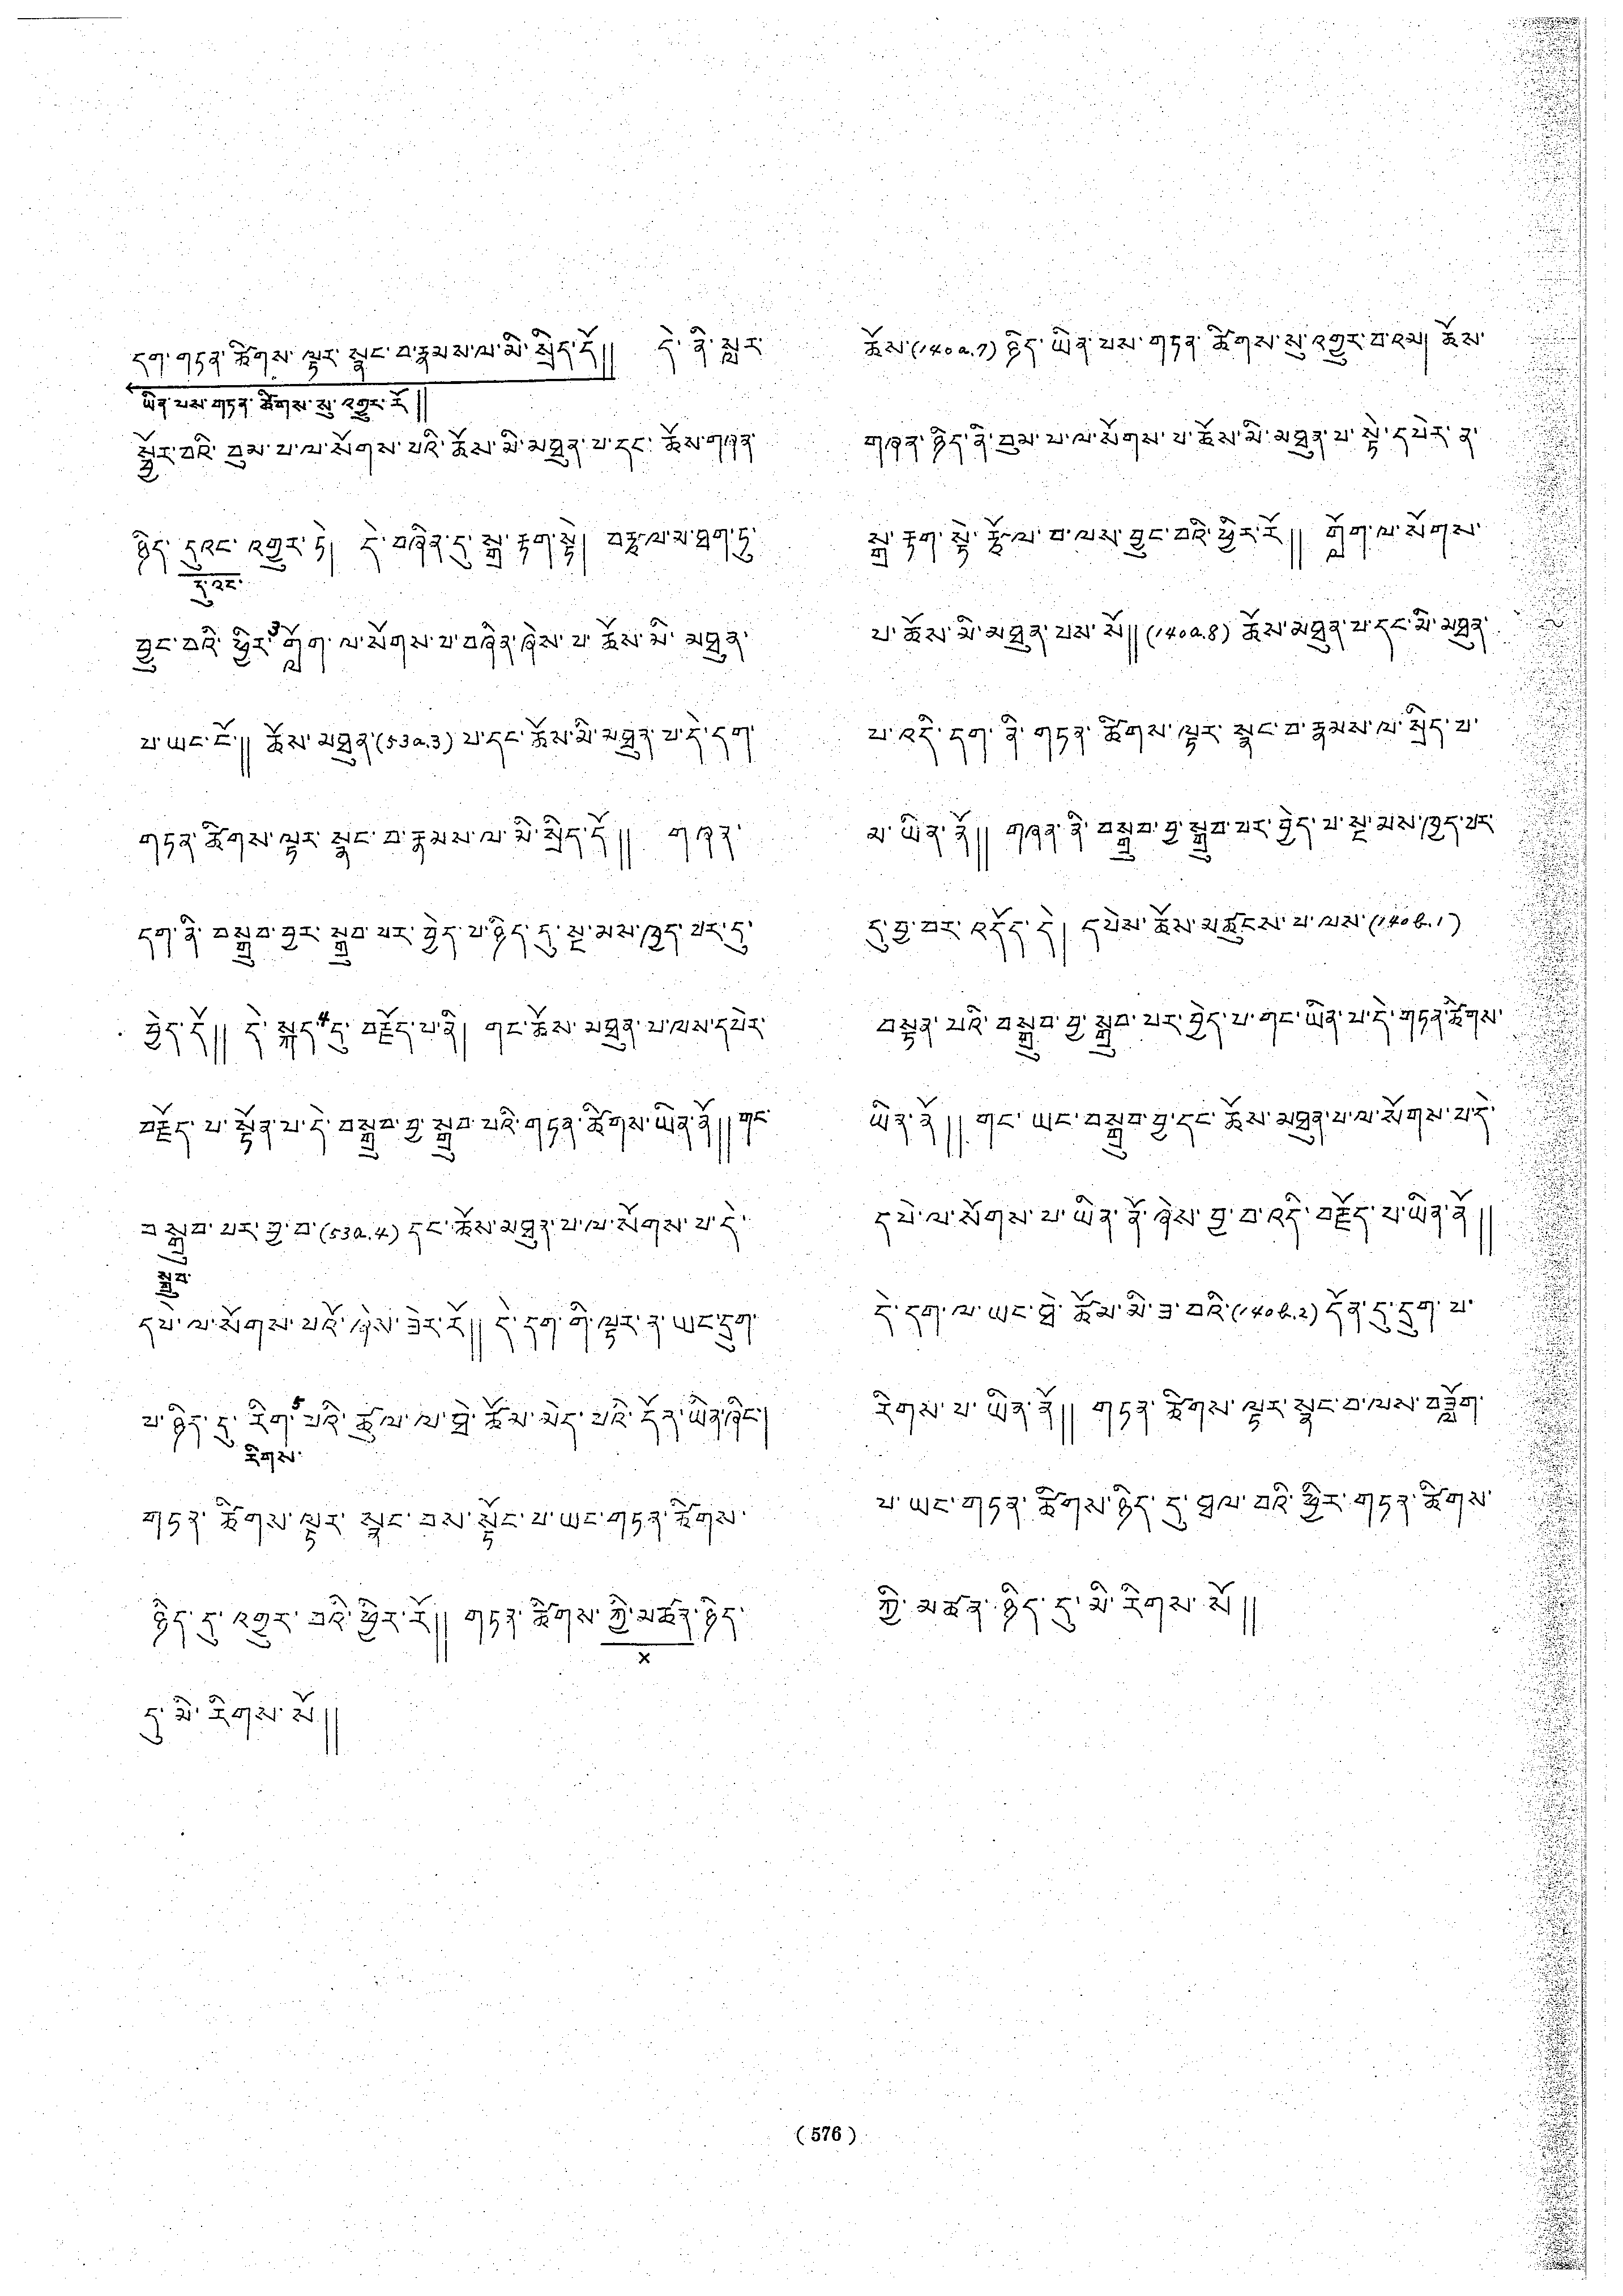 དག་གཏན་ཚིགས་ལྟར་སྣང་བ་རྣམས་ལ་མི་སྲིད་དོ།། དེ་ནི་སླར་
ཡིན་པས་གཏན་ཚིགས་སུ་འགྱུར་རོ།།
སྦྱོར་བའི་བུམ་པ་ལ་སོགས་པའི་ཆོས་མི་མཐུན་པ་དང་ཆོས་གཞན་
ཉིད་དུའང་འགྱུར་ཏེ། དེ་བཞིན་དུ་སྒྲ་རྟག་སྟེ། བརྩལ་མ་ཐག་ཏུ་
དུ་འང་
བྱུང་བའི་ཕྱིར་3གློག་ལ་སོགས་པ་བཞིན་ཞེས་པ་ཆོས་མི་མཐུན་
པ་ཡང་ངོ་།། ཆོས་མཐུན་(53a.3)པ་དང་ཆོས་མི་མཐུན་པ་དེ་དག་
གཏན་ཚིགས་ལྟར་སྣང་བ་རྣམས་ལ་མི་སྲིད་དོ།། གཞན་
དག་ནི་བསྒྲུབ་བྱར་སྒྲུབ་པར་བྱེད་པ་ཉིད་དུ་སྔ་མས་ཁྱད་པར་དུ་
བྱེད་དོ།། དེ་སྐད་4དུ་བརྗོད་པ་ནི། གང་ཆོས་མཐུན་པ་ལས་དཔེར་
བརྗོད་པ་སྟོན་པ་དེ་བསྒྲུབ་བྱ་སྒྲུབ་པའི་གཏན་ཚིགས་ཡིན་ནོ།། གང་
བསྒྲུབ་པར་བྱ་བ་(53a.4)དང་ཆོས་མཐུན་པ་ལ་སོགས་པ་དེ་
སྒྲུབ་
དཔེ་ལ་སོགས་པའོ་ཞེས་ཟེར་རོ།། དེ་དག་གི་ལྟར་ན་ཡང་དྲུག་
པ་ཉིད་དུ་རིག་5པའི་ཚུལ་ལ་ཐེ་ཚོམ་མེད་པའི་དོན་ཡིན་ཞིང་།
རིགས་
གཏན་ཚིགས་ལྟར་སྣང་བས་སྟོང་པ་ཡང་གཏན་ཚིགས་
ཉིད་དུ་འགྱུར་བའི་ཕྱིར་རོ།། གཏན་ཚིགས་ཀྱི་མཚན་ཉིད་
x
དུ་མི་རིགས་སོ།།
ཆོས་(140a.7)ཉིད་ཡིན་པས་གཏན་ཚིགས་སུ་འགྱུར་བ་འམ། ཆོས་
གཞན་ཉིད་ནི་བུམ་པ་ལ་སོགས་པ་ཆོས་མི་མཐུན་པ་སྟེ་དཔེར་ན་
སྒྲ་རྟག་སྟེ་རྩོལ་བ་ལས་བྱུང་བའི་ཕྱིར་རོ།། གློག་ལ་སོགས་
པ་ཆོས་མི་མཐུན་པས་སོ།།(140a.8) ཆོས་མཐུན་པ་དང་མི་མཐུན་
པ་འདི་དག་ནི་གཏན་ཚིགས་ལྟར་སྣང་བ་རྣམས་ལ་སྲིད་པ་
མ་ཡིན་ནོ།། གཞན་ནི་བསྒྲུབ་བྱ་སྒྲུབ་པར་བྱེད་པ་སྔ་མས་ཁྱད་པར་
དུ་བྱ་བར་འདོད་དེ། དཔེས་ཆོས་མཚུངས་པ་ལས་(140b.1)
བསྟན་པའི་བསྒྲུབ་བྱ་སྒྲུབ་པར་བྱེད་པ་གང་ཡིན་པ་དེ་གཏན་ཚིགས་
ཡིན་ནོ།། གང་ཡང་བསྒྲུབ་བྱ་དང་ཆོས་མཐུན་པ་ལ་སོགས་པ་དེ་
དཔེ་ལ་སོགས་པ་ཡིན་ནོ་ཞེས་བྱ་བ་འདི་བརྗོད་པ་ཡིན་ནོ།།
དེ་དག་ལ་ཡང་ཐེ་ཚོམ་མི་ཟ་བའི་(140b.2)དོན་དུ་དྲུག་པ་
རིགས་པ་ཡིན་ནོ།། གཏན་ཚིགས་ལྟར་སྣང་བ་ལས་བཟློག་
པ་ཡང་གཏན་ཚིགས་ཉིད་དུ་ཐལ་བའི་ཕྱིར་གཏན་ཚིགས་
ཀྱི་མཚན་ཉིད་དུ་མི་རིགས་སོ།།
(576)